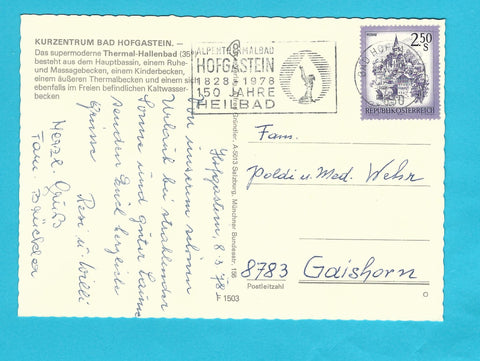 KURZENTRUM BAD HOFGASTEIN. –
Das supermoderne Thermal-Hallenbad (36°
besteht aus dem Hauptbassin, einem Ruhe-
und Massagebecken, einem Kinderbecken,
einem äußeren Thermalbecken und einem sich
ebenfalls im Freien befindlichen Kaltwasser-
becken
ALPENTHERMALBAD
HOFGASTEIN
1828-1978
150 JAHRE
HEILBAD
2.50
S
REPUBLIK ÖSTERREICH
Hofgastein, 8.3.78
Von unserem schönen
Urlaub bei strahlender
Sonne und guter Laune
senden Euch herzliche
Grüsse
Resi u. Willi
Herzl. Gruß
Fam.
A-5013 Salzburg, Münchner Bundesstr. 156
F 1503
Fam.
Poldi u. Med. Wehr
8783 Gaishorn
Postleitzahl